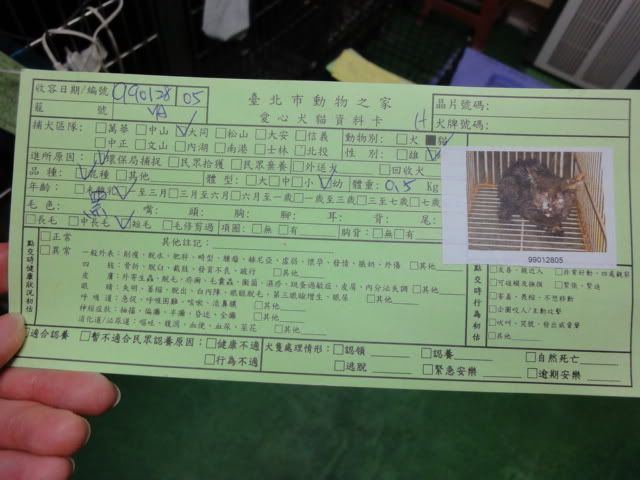 收容日期/編號 990128 05
臺北市動物之家
愛心犬貓資料卡
晶片號碼:
犬牌號碼:
籠 號
捕犬區隊: □萬華 □中山 □大同 □松山 □大安 □信義
□中正 □文山 □內湖 □南港 □士林 □北投
動物別: □犬 ■貓
性 別: □雄
進所原因: □環保局捕捉 □民眾拾獲 □民眾棄養 □外送犬 □回收犬
品 種: □混種 □其他
體 型: □大 □中 □小 □幼 體重: 0.5 Kg
年齡: □未離乳 □至三月 □三月至六月 □六月至一歲 □一歲至三歲 □三至七歲
毛 色: 黑 嘴: 頭: 胸: 腳: 耳: 背: 尾:
□長毛 □中長毛 □短毛 □毛修剪過 項圈: □無 □有 胸背: □無 □有
99012805
點交時健康狀況初估
□正常
□異常
其他註記:
一般外表: 削瘦、脫水、肥胖、畸型、腫瘤、赫尼亞、虛弱、懷孕、發情、脹奶、外傷 □其他
四 肢: 骨折、脫臼、截肢、發育不良、跛行 □其他
皮 膚: 外寄生蟲、脫毛、疥癬、毛囊蟲、黴菌、濕疹、跳蚤過敏症、皮屑、內分泌失調 □其他
眼 睛: 失明、萎縮、脫出、白內障、眼瞼脫毛、第三眼瞼增生、眼屎 □其他
呼 吸 道: 急促、呼吸困難、咳嗽、流鼻膿 □其他
神經症狀: 抽搐、偏癱、半癱、昏迷、全癱 □其他
消化道/泌尿道: 嘔吐、腹瀉、血便、血尿、菜花 □其他
點交時行為初估
□友善、親近人 □非常好動、四處觀察
□可碰觸及撫摸 □緊張、緊迫
□害羞、畏縮、不想移動
□企圖咬人/主動攻擊
□吠叫、哭號、發出威脅聲
□其他
□適合認養 □暫不適合民眾認養原因: □健康不適 □行為不適
犬隻處理情形: □認領 □認養 □自然死亡
□逃脫 □緊急安樂 □逾期安樂